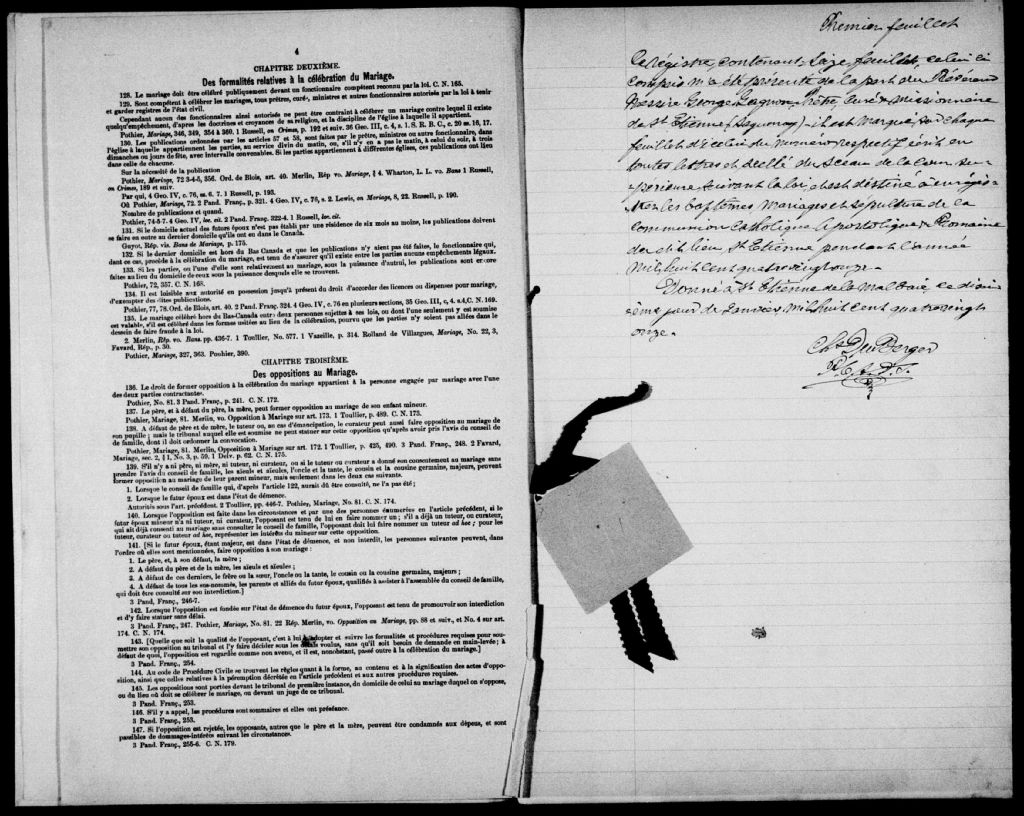 4
CHAPITRE DEUXIÈME.
Des formalités relatives à la célébration du Mariage.
128. Le mariage doit être célébré publiquement devant un fonctionnaire compétent reconnu par la loi. C. N. 165.
129. Sont compétents à célébrer les mariages, tous prêtres, curés, ministres et autres fonctionnaires autorisés par la loi à tenir
et garder registres de l'état civil.
Cependant aucun des fonctionnaires ainsi autorisés ne peut être contraint à célébrer un mariage contre lequel il existe
quelqu'empêchement, d'après les doctrines et croyances de sa religion, et la discipline de l'église à laquelle il appartient.
Pothier, Mariage, 346, 349, 354 à 360. 1 Russell, on Crimes, p. 192 et suiv. 36 Geo. III, c. 4, s. 1. S. R. B. C., c. 20 ss. 16, 17.
130. Les publications ordonnées par les articles 57 et 58, sont faites par le prêtre, ministre ou autre fonctionnaire, dans
l'église à laquelle appartiennent les parties, au service divin du matin, ou, s'il n'y en a pas le matin, à celui du soir, à trois
dimanches ou jours de fête, avec intervalle convenables. Si les parties appartiennent à différentes églises, ces publications ont lieu
dans celle de chacune.
Sur la nécessité de la publication
Pothier, Mariage, 72 3-4-5, 356. Ord. de Blois, art. 40. Merlin, Rép vo. Mariage, § 4. Wharton, L. L. vo. Bans 1 Russell,
on Crimes, 189 et suiv.
Par qui, 4 Geo. IV, c. 76, ss. 6. 7. 1 Russell, p. 193.
Où Pothier, Mariage, 72. 2 Pand. Franç., p. 321. 4 Geo. IV, c. 76, s. 2. Lewis, on Mariage, 8, 22. Russell, p. 190.
Nombre de publications et quand.
Pothier, 74-5-7. 4 Geo. IV, loc. cit. 2 Pand. Franç. 322-4. 1 Russell, loc. cit.
131. Si le domicile actuel des futurs époux n'est pas établi par une résidence de six mois au moins, les publications doivent
se faire en outre au dernier domicile qu'ils ont eu dans le Canada.
Guyot, Rép. vis. Bans de Mariage, p. 175.
132. Si le dernier domicile est hors du Bas-Canada et que les publications n'y aient pas été faites, le fonctionnaire qui,
dans ce cas, procède à la célébration du mariage, est tenu de s'assurer qu'il existe entre les parties aucuns empêchements légaux.
133. Si les parties, ou l'une d'elles sont relativement au mariage, sous la puissance d'autrui, les publications sont encore
faites au lieu du domicile de ceux sous la puissance desquels elle se trouvent.
Pothier, 72, 357. C. N. 168.
134. Il est loisible aux autorités en possession jusqu'à présent du droit d'accorder des licences ou dispenses pour mariage,
d'exempter des dites publications.
Pothier, 77, 78. Ord. de Blois, art. 40. 2 Pand. Franç. 324. 4 Geo. IV, c. 76 en plusieurs sections, 35 Geo. III, c. 4. s.4, C. N. 169.
135. Le mariage célébré hors du Bas-Canada entre deux personnes sujettes à ses lois, ou dont l'une seulement y est soumise
est valable, s'il est célébré dans les formes usitées au lieu de la célébration, pourvu que les parties n'y soient pas allées dans le
dessein de faire fraude à la loi.
2. Merlin, Rép. vo. Bans. pp. 436-7. 1 Toullier, No. 577. 1 Vazeille, p. 314. Rolland de Villargues, Mariage, No. 22, 3,
Favard, Rép., p. 30.
Pothier, Mariage, 327, 363. Pouhier, 390.
CHAPITRE TROISIÈME.
Des oppositions au Mariage.
136. Le droit de former opposition à la célébration du mariage appartient à la personne engagée par mariage avec l'une
des deux parties contractantes.
Pothier, No. 81. 3 Pand. Franç., p. 241. C. N. 172.
137. Le père, et à défaut du père, la mère, peut former opposition au mariage de son enfant mineur.
Pothier, Mariage, 81. Merlin, vo. Opposition à Mariage sur art. 173. 1 Toullier, p. 489. C. N. 173.
138. A défaut de père et de mère, le tuteur ou, au cas d'émancipation, le curateur peut aussi faire opposition au mariage de
son pupille; mais le tribunal auquel elle est soumise ne peut statuer sur cette opposition qu'après avoir pris l'avis du conseil de
de famille, dont il doit ordonner la convocation.
Pothier, Mariage, 81. Merlin, Opposition à Mariage sur art. 172. 1 Toullier, p. 425, 490. 3 Pand. Franç., 248. 2 Favard,
Mariage, sec. 2, § 1, No. 3, p. 59. 1 Delv. p. 62. C. N. 175.
139. S'il n'y a ni père, ni mère, ni tuteur, ni curateur, ou si le tuteur ou curateur a donné son consentement au mariage sans
prendre l'avis du conseil de famille, les aïeuls et aïeules, l'oncle et la tante, le cousin et la cousine germains, majeurs, peuvent
former opposition au mariage de leur parent mineur, mais seulement dans les deux cas suivants.
1. Lorsque le conseil de famille qui, d'après l'article 122, aurait dû être consulté, ne l'a pas été;
2. Lorsque le futur époux est dans l'état de démence.
Autorités sous l'art. précédent. 2 Toullier, pp. 446-7. Pothier, Mariage, No. 81. C. N. 174.
140. Lorsque l'opposition est faite dans les circonstances et par une des personnes énumérées en l'article précédent, si le
futur époux mineur n'a ni tuteur, ni curateur, l'opposant est tenu de lui en faire nommer un; s'il a déjà un tuteur, ou curateur,
qui ait déjà consenti au mariage sans consulter le conseil de famille, l'opposant doit lui faire nommer un tuteur ad hoc; pour les
tuteur, curateur ou tuteur ad hoc, représenter les intérêts du mineur sur cette opposition.
141. [Si le futur époux, étant majeur, est dans l'état de démence, et non interdit, les personnes suivantes peuvent, dans
l'ordre où elles sont mentionnées, faire opposition à son mariage :
1. Le père, et, à son défaut, la mère;
2. A défaut du père et de la mère, les aïeuls et aïeules;
3. A défaut de ces derniers, le frère ou la sœur, l'oncle ou la tante, le cousin ou la cousine germains, majeurs;
4. A défaut de tous les sus-nommés, les parents et alliés du futur époux, qualifiés à assister à l'assemblée du conseil de famille,
qui doit être consulté sur son interdiction.]
3 Pand. Franç., 246-7.
142. Lorsque l'opposition est fondée sur l'état de démence du futur époux, l'opposant est tenu de promouvoir son interdiction
et d'y faire statuer sans délai.
3 Pand. Franç., 247. Pothier, Mariage, No. 81. 22 Rép. Merlin, vo. Opposition au Mariage, pp. 88 et suiv., et No. 4 sur art.
174. C. N. 174.
143. [Quelle que soit la qualité de l'opposant, c'est à lui à adopter et suivre les formalités et procédures requises pour sou-
mettre son opposition au tribunal et l'y faire décider sous les délais voulus, sans qu'il soit besoin de demande en main-levée; à
défaut de quoi, l'opposition est regardée comme non avenu, et il est, nonobstant, passé outre à la célébration du mariage.]
3 Pand. Franç., 254.
144. Au code de Procédure Civile se trouvent les règles quant à la forme, au contenu et à la signification des actes d'oppo-
sition, ainsi que celles relatives à la péremption décrétée en l'article précédent et aux autres procédures requises.
145. Les oppositions sont portées devant le tribunal de première instance, du domicile de celui au mariage duquel on s'oppose,
ou du lieu où doit se célébrer le mariage, ou devant un juge de ce tribunal.
3 Pand. Franç., 253.
146. S'il y a appel, les procédures sont sommaires et elles ont préséance.
3 Pand. Franç., 253.
147. Si l'opposition est rejetée, les opposants, autres que le père et la mère, peuvent être condamnés aux dépens, et sont
passibles de dommages-intérêts suivant les circonstances.
3 Pand. Franç., 255-6. C. N. 179.
Premier feuillet
Ce régistre contenant Seize feuillets, celui ci
compris m'a été présenté de la part du Révérend
Messire George Gagnon, Prêtre, Curé & Missionnaire
de St Etienne (Saguenay) - il est marqué sur chaque
feuillet d'icelui du numéro respectif écrit en
toutes lettres et scellé du Sceau de la Cour Su-
périeure suivant la loi, et est destiné à enrégis-
trer les baptêmes, Mariages et sépulture de la
Communion Catholique Apostolique & Romaine
du dit lieu St Etienne pendant l'année
Mil huit cent quatre vingt onze.-
Donné à St Etienne de la Malbaie ce dixi-
ème jour de Janvier Mil huit cent quatre vingt
onze.-
Chs DuBerger
P. C. S. D. S.